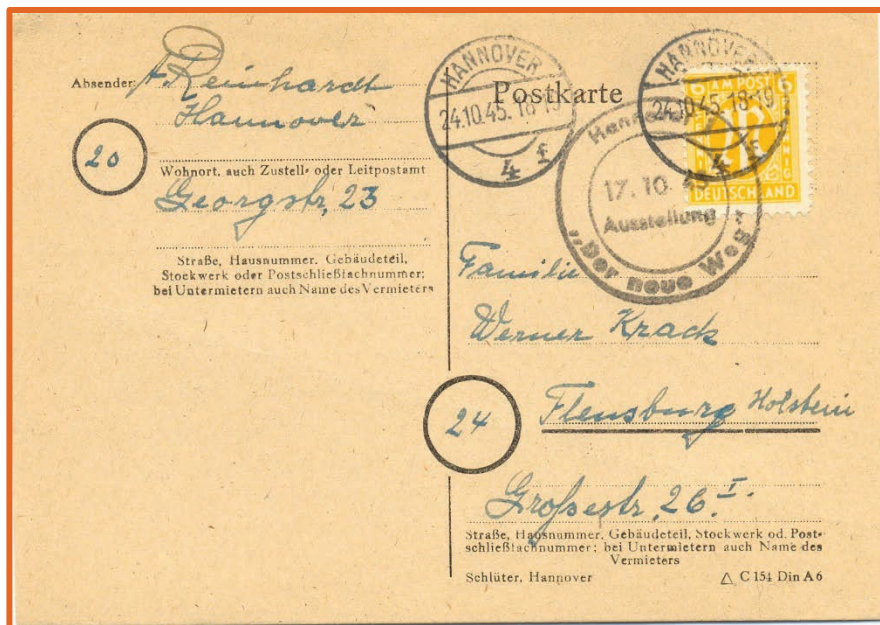 Postkarte
Absender: A. Reinhardt
Hannover
20
Wohnort, auch Zustell- oder Leitpostamt
Georgstr, 23
Straße, Hausnummer, Gebäudeteil,
Stockwerk oder Postschließfachnummer;
bei Untermietern auch Name des Vermieters
HANNOVER
24.10.45.18-19
4 f
HANNOVER
24.10.45.18-19
4 f
6 AM POST 6
DEUTSCHLAND
17.10.45
Ausstellung
„Der neue Weg"
Familie
Werner Krack
24
Flensburg Holstein
Großestr, 26 I.
Straße, Hausnummer, Gebäudeteil, Stockwerk od. Post-
schließfachnummer; bei Untermietern auch Name des
Vermieters
Schlüter, Hannover
C 154 Din A 6